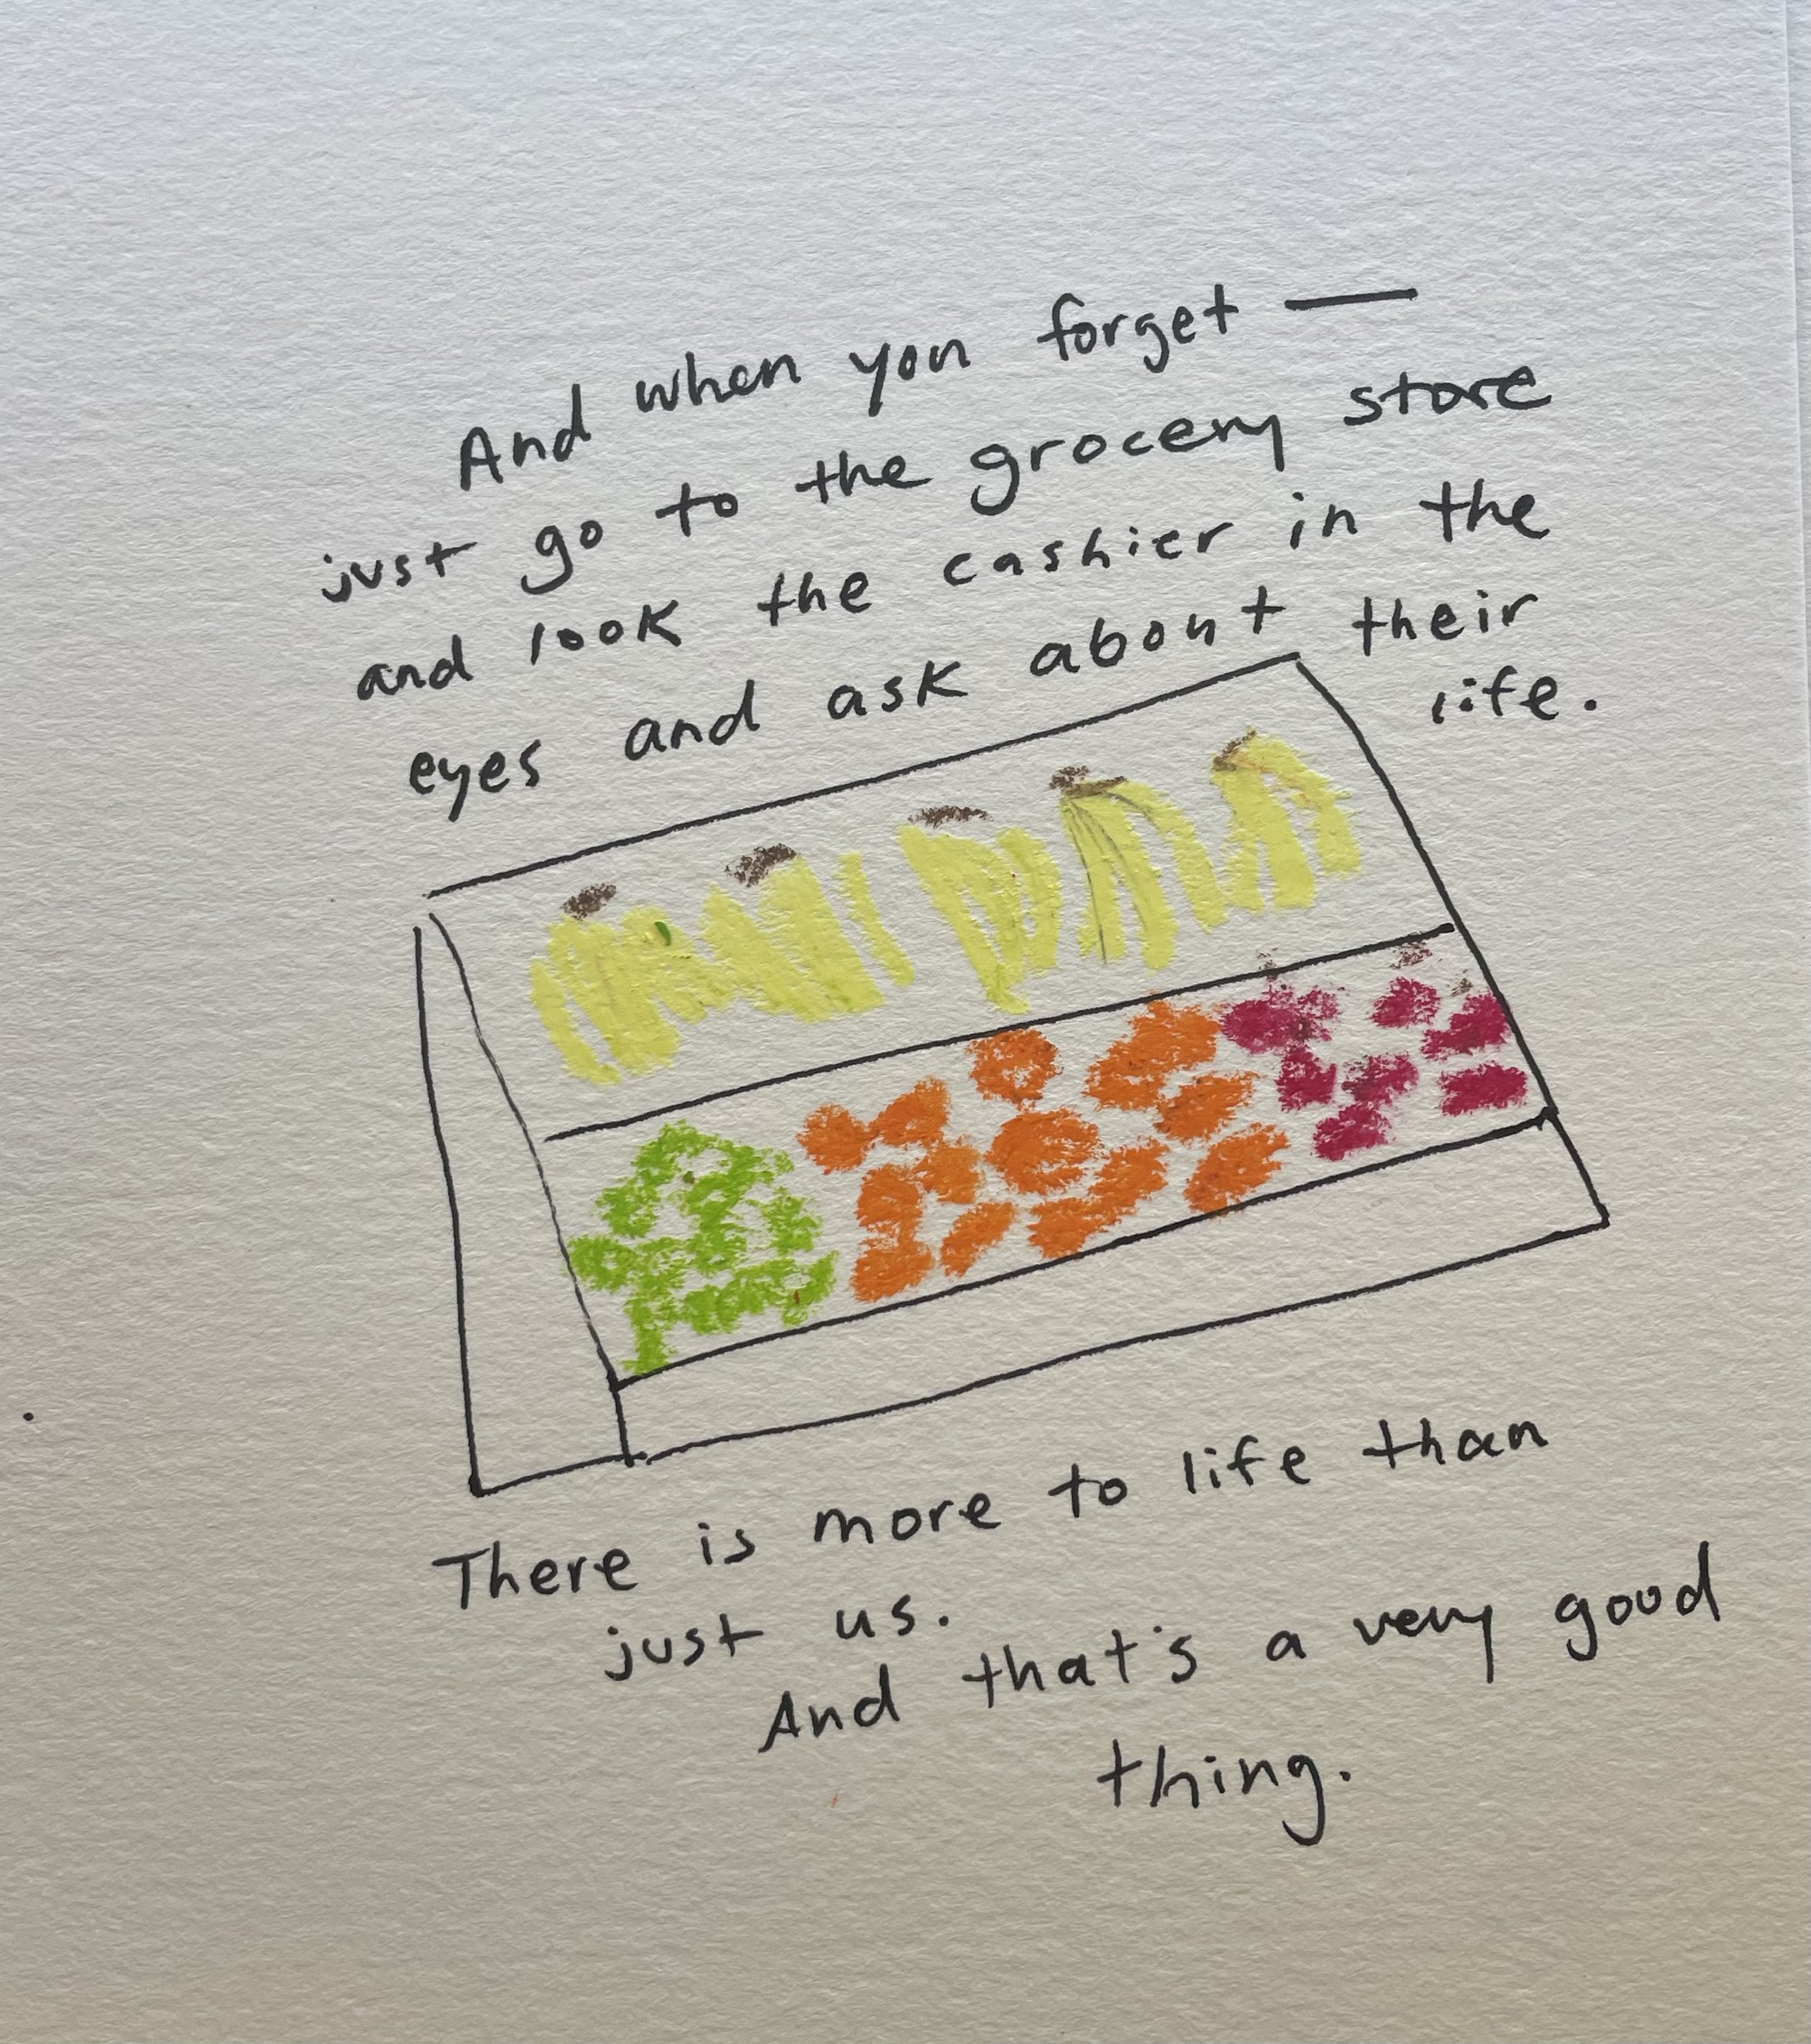 And when you forget —
just go to the grocery store
and look the cashier in the
eyes and ask about their
life.
There is more to life than
just us.
And that's a very good
thing.